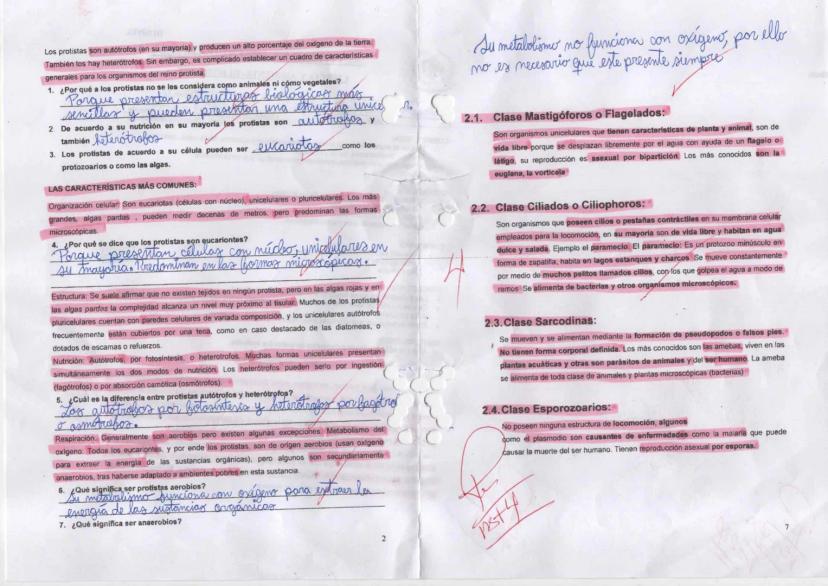 Los protistas son autótrofos (en su mayoría) y producen un alto porcentaje del oxígeno de la tierra.
También los hay heterótrofos. Sin embargo, es complicado establecer un cuadro de características
generales para los organismos del reino protista.
1. ¿Por qué a los protistas no se les considera como animales ni cómo vegetales?
Porque presentan estructuras biológicas más
sencillas y pueden presentar una estructura unice
2 De acuerdo a su nutrición en su mayoría los protistas son autótrofos y
también heterótrofos
3. Los protistas de acuerdo a su célula pueden ser eucariotas como los
protozoarios o como las algas.
LAS CARACTERÍSTICAS MÁS COMUNES:
Organización celular: Son eucariotas (células con núcleo), unicelulares o pluricelulares. Los más
grandes, algas pardas , pueden medir decenas de metros, pero predominan las formas
microscópicas.
4. ¿Por qué se dice que los protistas son eucariontes?
Porque presentan células con núcleo, unicelulares en
su mayoría. Predominan en las formas microscópicas.
Estructura: Se suele afirmar que no existen tejidos en ningún protista, pero en las algas rojas y en
las algas pardas la complejidad alcanza un nivel muy próximo al tisular. Muchos de los protistas
pluricelulares cuentan con paredes celulares de variada composición, y los unicelulares autótrofos
frecuentemente están cubiertos por una teca, como en caso destacado de las diatomeas, o
dotados de escamas o refuerzos.
Nutrición: Autótrofos, por fotosíntesis, o heterotrofos. Muchas formas unicelulares presentan
simultáneamente los dos modos de nutrición. Los heterótrofos pueden serlo por ingestión
(fagótrofos) o por absorción osmótica (osmótrofos).
5. ¿Cuál es la diferencia entre protistas autótrofos y heterótrofos?
Los autótrofos por fotosíntesis y heterótrofos por fagótrof
o osmótrofos.
Respiración: Generalmente son aerobios pero existen algunas excepciones. Metabolismo del
oxígeno: Todos los eucariontes, y por ende los protistas, son de origen aerobios (usan oxígeno
para extraer la energía de las sustancias orgánicas), pero algunos son secundariamente
anaerobios, tras haberse adaptado a ambientes pobres en esta sustancia.
6. ¿Qué significa ser protistas aerobios?
Su metabolismo funciona con oxígeno para extraer la
energía de las sustancias orgánicas
7. ¿Qué significa ser anaerobios?
2
Su metabolismo no funciona con oxígeno, por ello
no es necesario que este presente siempre
2.1. Clase Mastigóforos o Flagelados:
Son organismos unicelulares que tienen características de planta y animal, son de
vida libre porque se desplazan libremente por el agua con ayuda de un flagelo o
látigo, su reproducción es asexual por bipartición. Los más conocidos son la
euglana, la vorticela
2.2. Clase Ciliados o Ciliophoros:
Son organismos que poseen cilios o pestañas contráctiles en su membrana celular
empleados para la locomoción, en su mayoría son de vida libre y habitan en agua
dulce y salada. Ejemplo el paramecio. El paramecio: Es un protozoo minúsculo en
forma de zapatilla, habita en lagos estanques y charcos. Se mueve constantemente
por medio de muchos pelitos llamados cilios, con los que golpea el agua a modo de
remos Se alimenta de bacterias y otros organismos microscópicos.
4
2.3.Clase Sarcodinas:
Se mueven y se alimentan mediante la formación de pseudopodos o falsos pies.
No tienen forma corporal definida. Los más conocidos son las amebas, viven en las
plantas acuáticas y otras son parásitos de animales y del ser humano. La ameba
se alimenta de toda clase de animales y plantas microscópicas (bacterias)
2.4.Clase Esporozoarios:
No poseen ninguna estructura de locomoción, algunos
como el plasmodio son causantes de enfermedades como la malaria que puede
causar la muerte del ser humano. Tienen reproducción asexual por esporas.
7